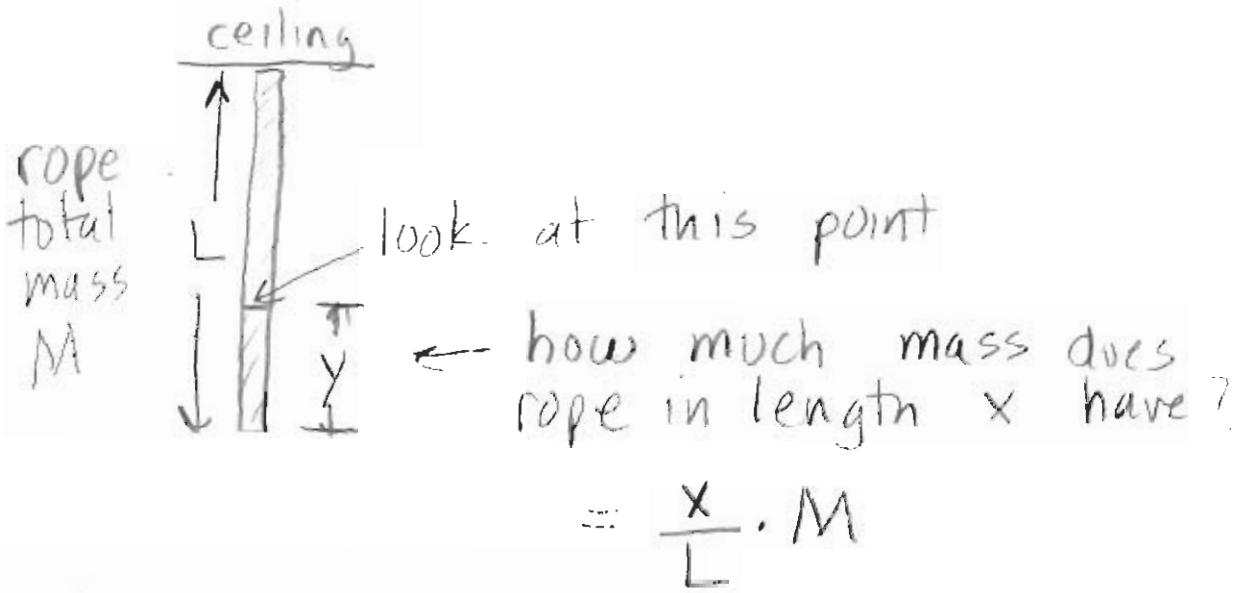 ceiling
rope
total
mass
M
L
look at this point
Y
how much mass does
rope in length x have?
= x/L · M